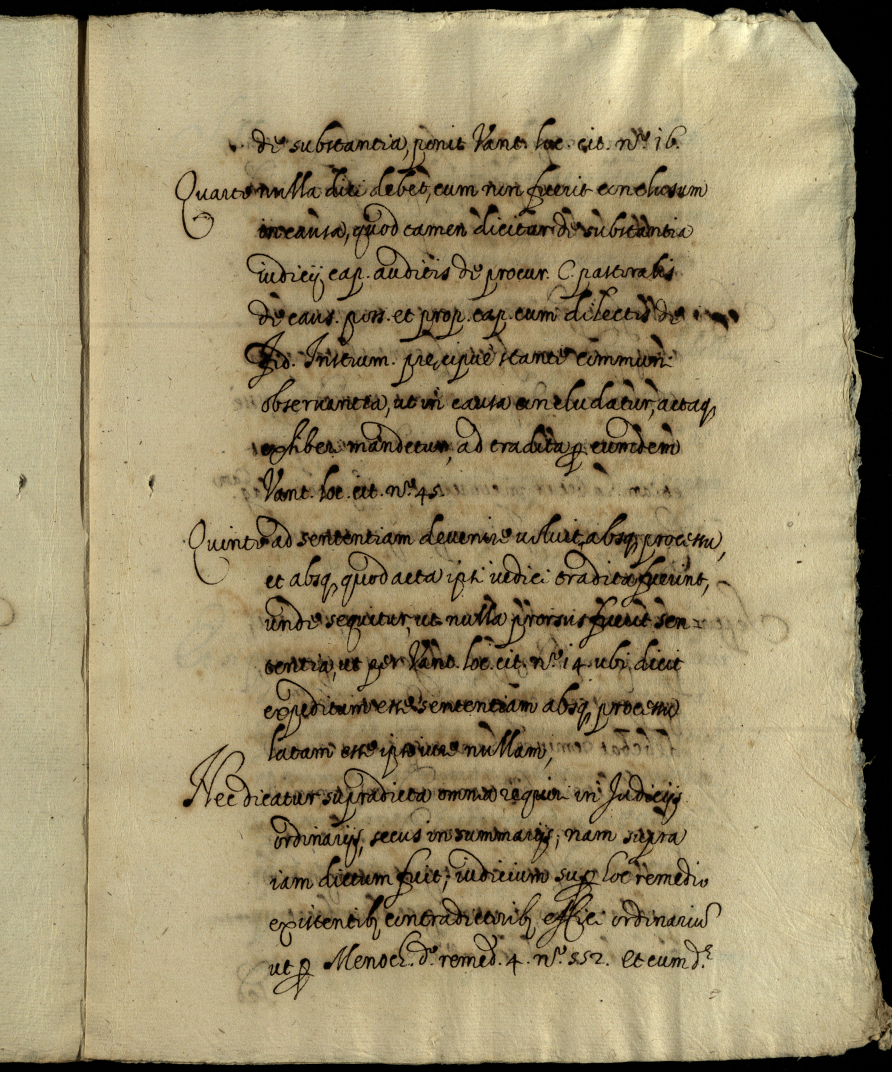 de substantia, ponit Vant. loc. cit. n.º 16.
Quarto nulla dici debet, cum non fuerit conclusum
in causa, quod tamen dicitur de substantia
iudicij cap. auditis de procur. C. pastoralis
de caus. poss. et prop. cap. cum dilectus de
fid. Instrum. precipue stante commun:
obseruantia, ut in causa concludatur, actaq
exhiberi mandetur, ad tradita p eumdem
Vant. loc. cit. n.º 45.
Quinto ad sententiam devenire voluit absq processu,
et absq quod acta ipsi iudici tradita fuerint,
unde sequitur, ut nulla prorsus fuerit sen=
tentia, ut per Vant. loc. cit. n.º 14. ubi dicit
expeditum esse sententiam absq processu
latam esse ipso iure nullam,
Nec dicatur supradicta omnia requiri in Judicijs
ordinarijs, secus in summarijs; nam supra
iam dictum fuit, iudicium sup hoc remedio
existentib contradictorib effici ordinarium
ut p Menoch. d.º remed. 4. n.º 552. et cum d.º